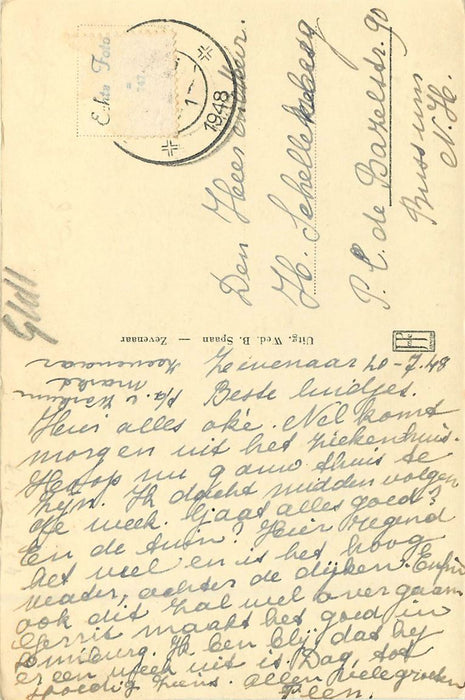 Echte Foto
747
1948
Den Heer
H. Schellekesberg
P. C. de Bazelstr. 90
Bussum
N.H.
Uitg. Wed. B. Spaan — Zevenaar
Zevenaar 20-7.48
p/a. v.
Markt
Zevenaar
Beste luidjes.
Hier alles oké. Nel komt
morgen uit het Ziekenhuis.
Hoop nu gauw thuis te
zijn. Ik dacht midden volgen
de week. Gaat alles goed?
En de tuin? Hier regend
het veel en is het hoog
water, achter de dijken. Enfin
ook dit zal wel overgaan
Gerrit maakt het goed in
Ik ben blij dat hij
er een week uit is. Dag, tot
spoedig ziens. allen vele groeten